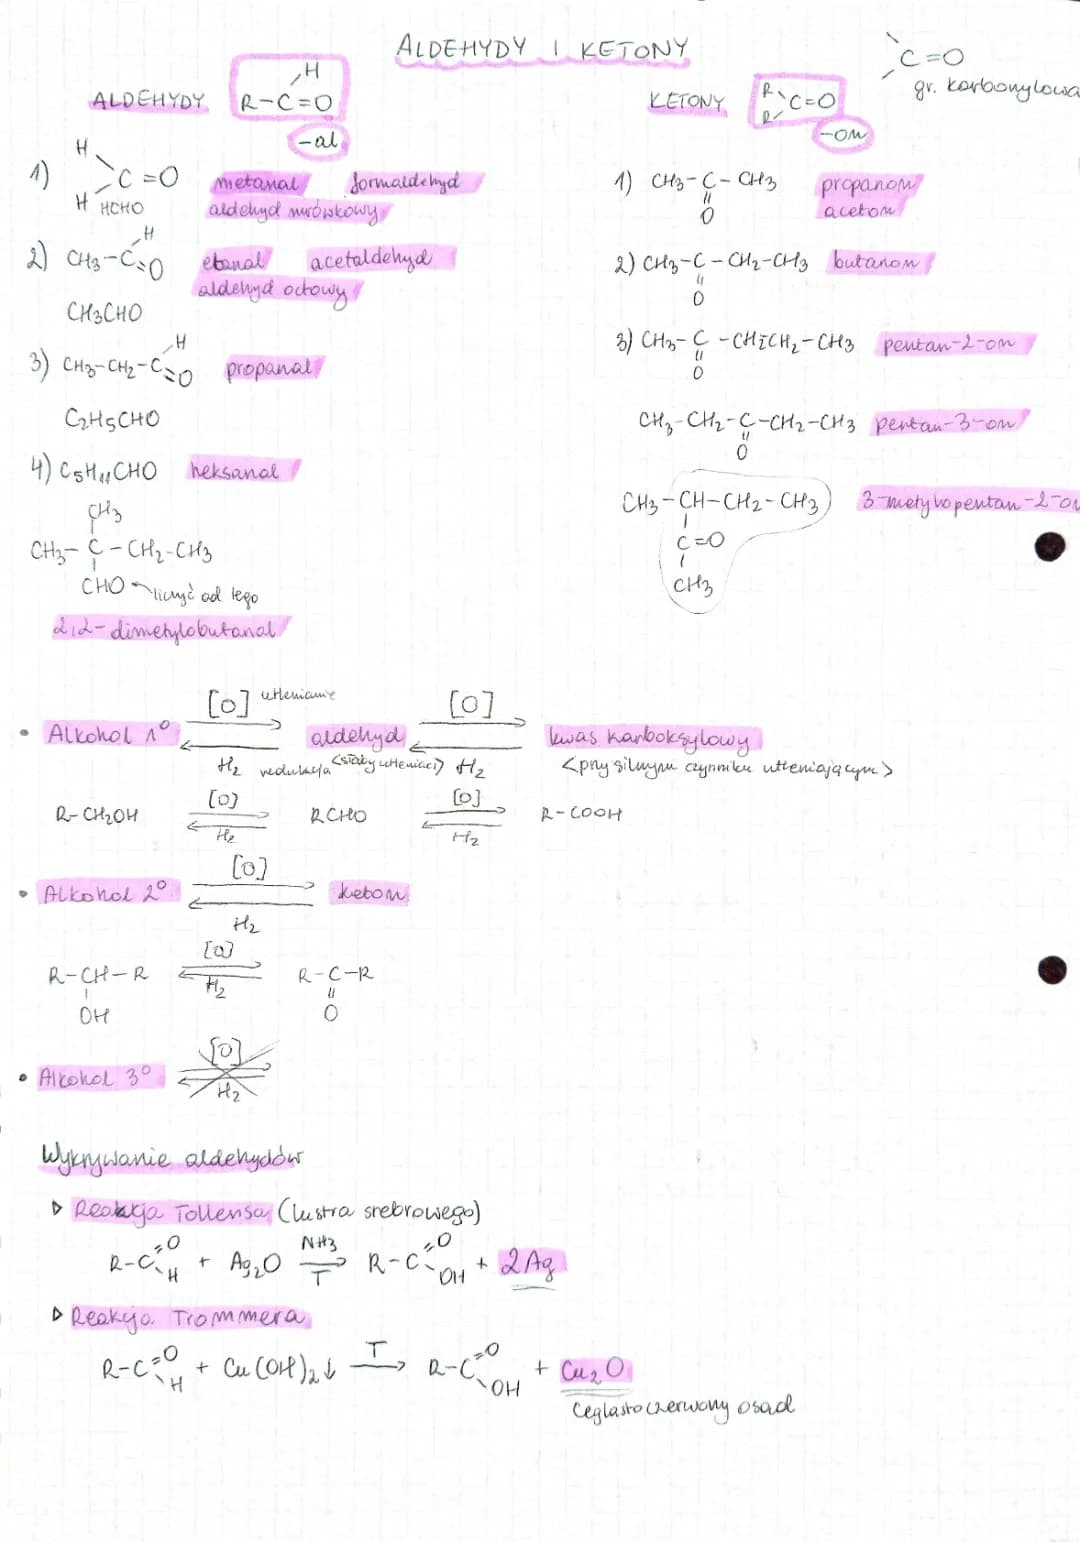 ALDEHYDY I KETONY
C=O
gr. karbonylowa
ALDEHYDY
H
R-C=O
-al
KETONY
R
C=O
R
-on
1) H
C=O
H HCHO
metanal formaldehyd
aldehyd mrówkowy
2) CH3-C
H
O
etanal acetaldehyd
aldehyd octowy
CH3CHO
3) CH3-CH2-C
H
O
propanal
C2H5CHO
4) C5H11CHO heksanal
CH3
CH3-C-CH2-CH3
CHO liczyć od tego
2,2-dimetylobutanal
1) CH3-C-CH3
O
propanon
aceton
2) CH3-C-CH2-CH3 butanon
O
3) CH3-C-CH2CH2-CH3 pentan-2-on
O
CH3-CH2-C-CH2-CH3 pentan-3-on
O
CH3-CH-CH2-CH3 3-metylopentan-2-on
C=O
CH3
[O] utlenianie [O]
• Alkohol 1° aldehyd kwas karboksylowy
H2 redukcja <słaby utleniacz> H2 <przy silnym czynniku utleniającym>
[O] [O]
R-CH2OH RCHO R-COOH
H2 H2
[O]
• Alkohol 2° keton
H2
[O]
R-CH-R R-C-R
H2
OH O
[O]
• Alkohol 3°
H2
Wykrywanie aldehydów
▷ Reakcja Tollensa (lustra srebrowego)
R-C=O H + Ag2O NH3 T R-C=O OH + 2Ag
▷ Reakcja Trommera
R-C=O H + Cu(OH)2↓ T R-C=O OH + Cu2O
Ceglastoczerwony osad